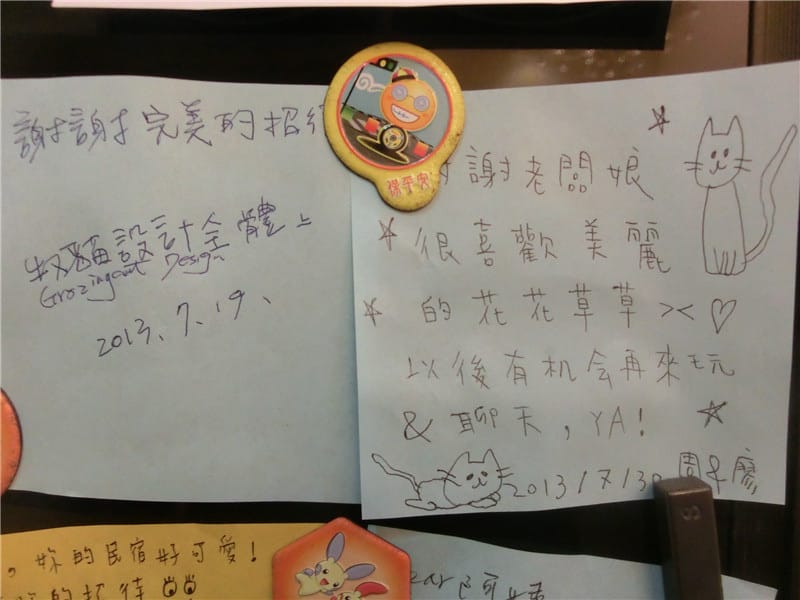 謝謝完美的招
設計全體上
Design
2013.7.19.
保平安
謝老闆娘
很喜歡美麗
的花花草草><♡
以後有机会再來玩
&聊天,YA!
2013/7/30 周&廖
8
,妳的民宿好可愛!
的招待